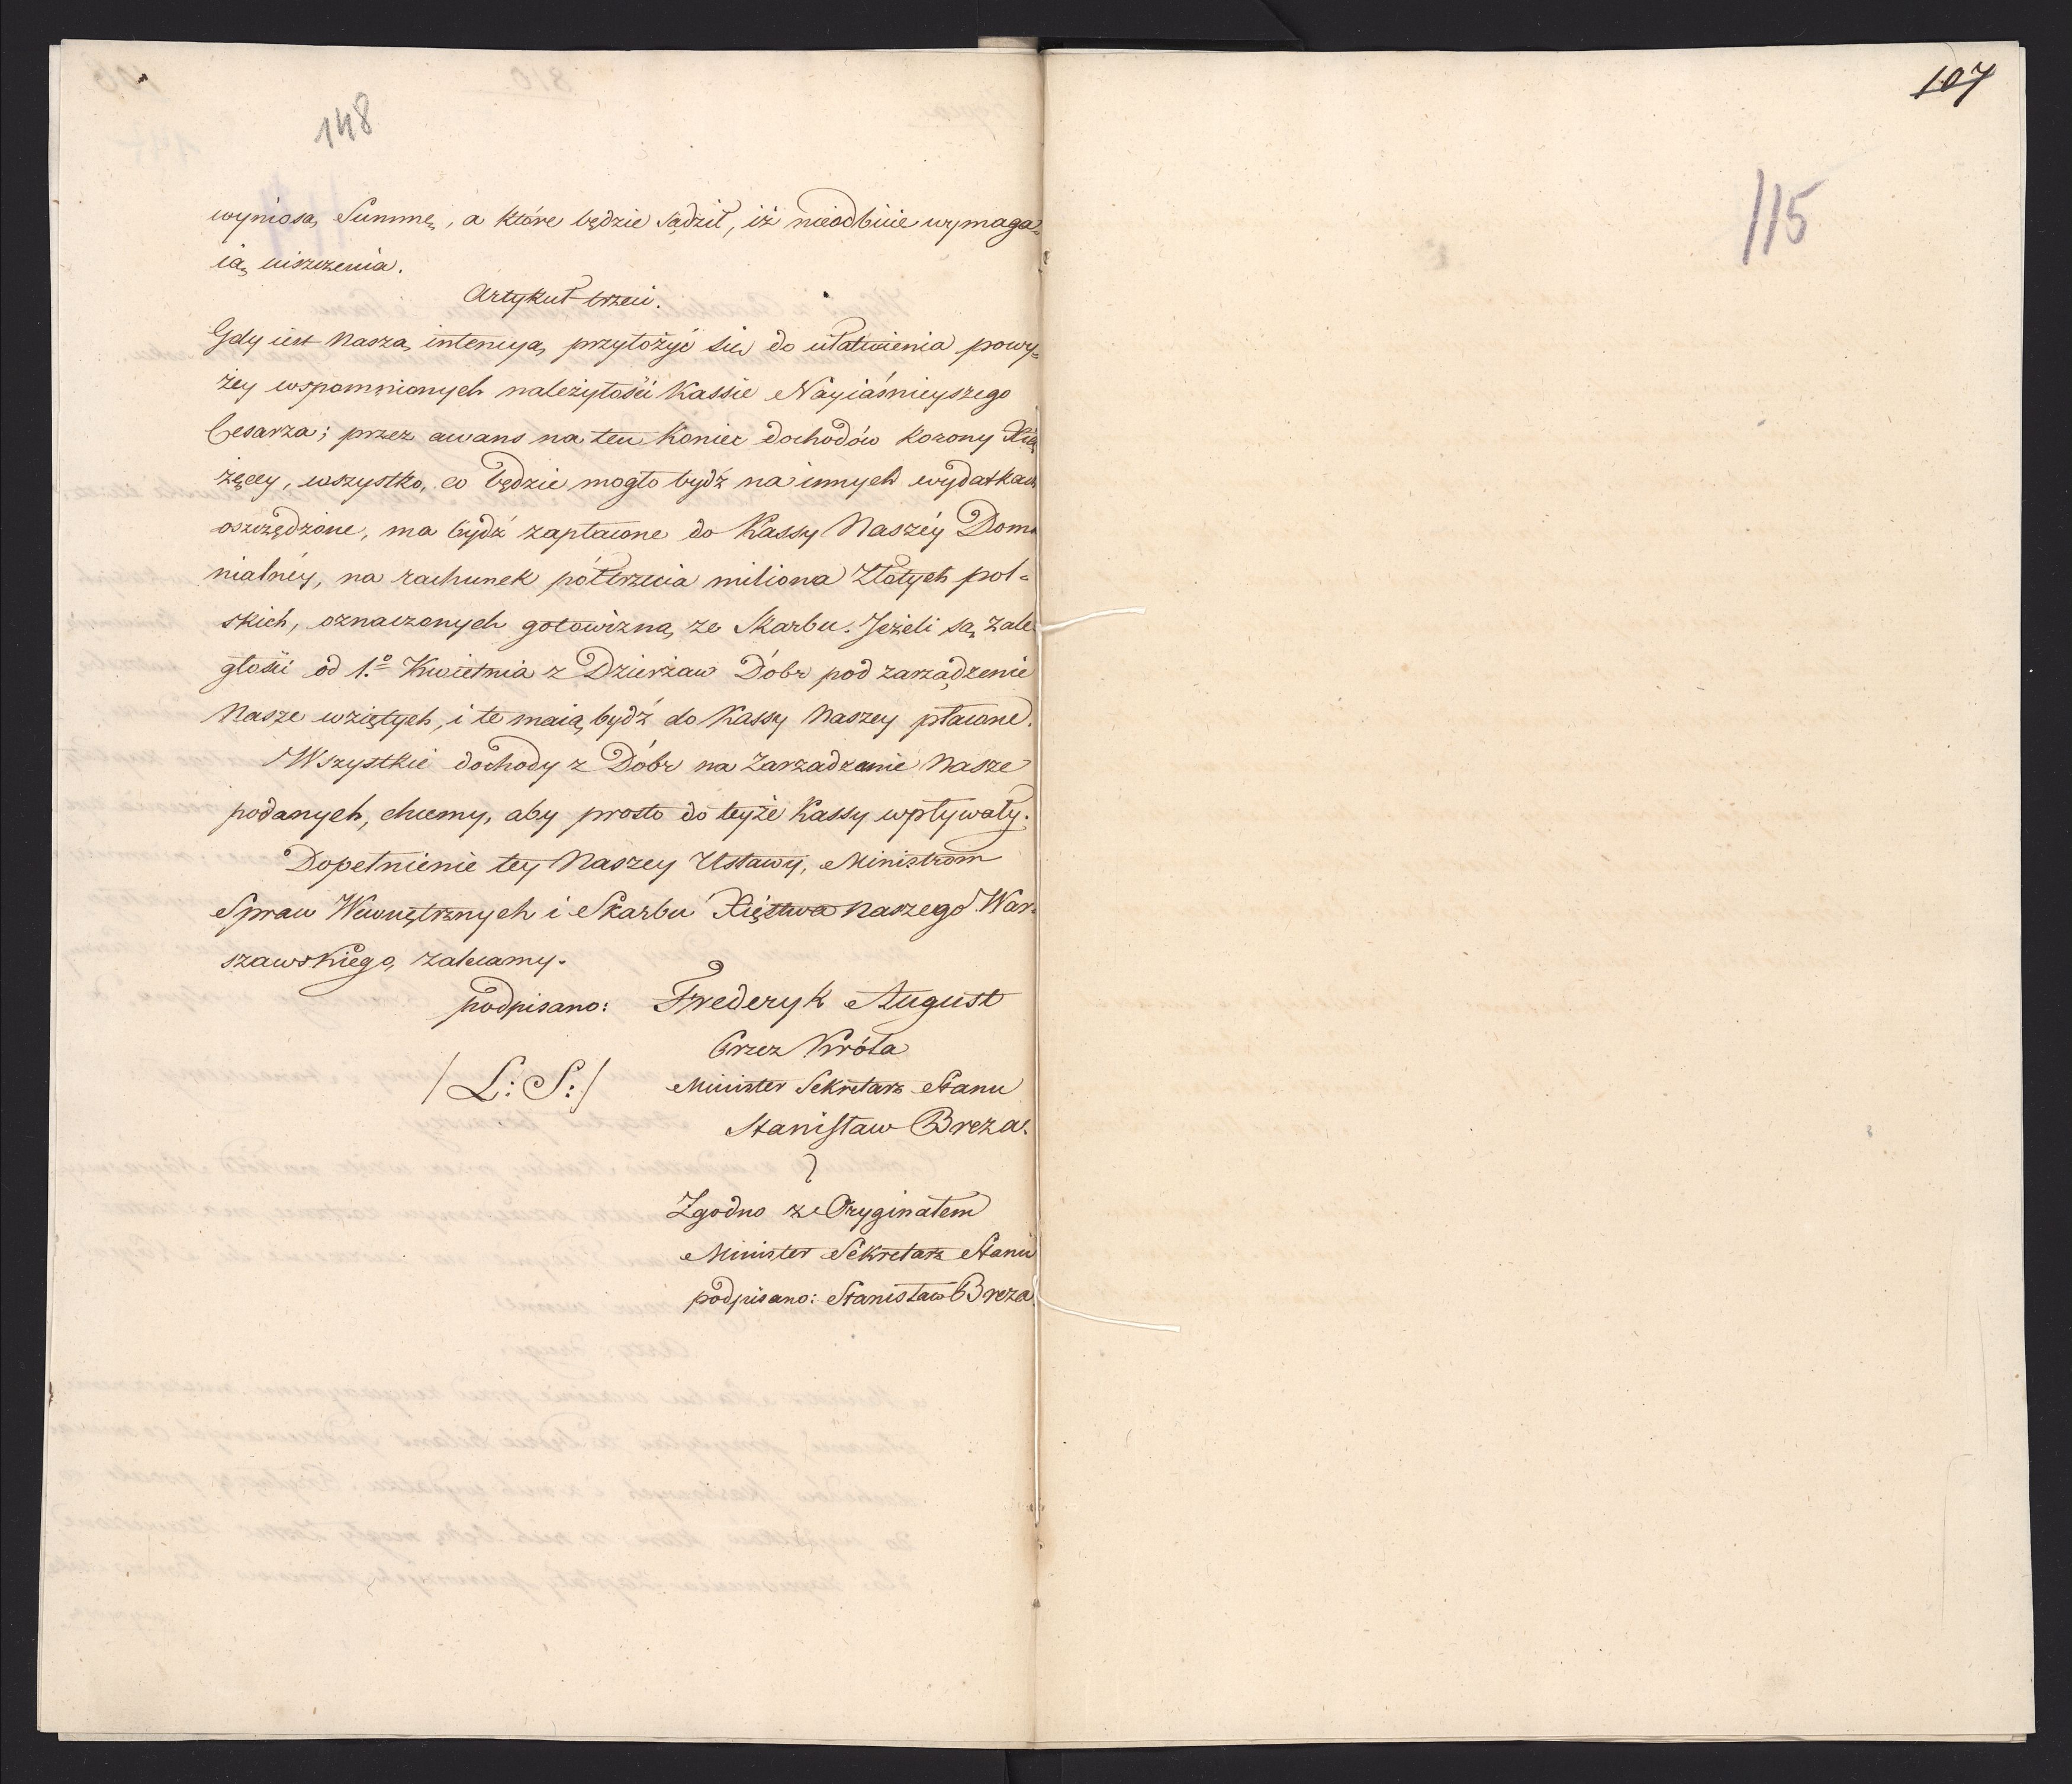 148
wyniosą Summę, a które będzie sądził, iż nieodbicie wymaga=
ią uiszczenia.
Artykuł trzeci.
Gdy iest Naszą intencyą, przyłożyć się do ułatwienia powy=
żey wspomnionych należytości Kassie Nayiaśnieyszego
Cesarza; przez awans na ten koniec dochodów korony Xią
żęcey, wszystko, co będzie mogło bydź na innych wydatkach
oszczędzone, ma bydź zapłacone do Kassy Naszéy Dome
nialnéy, na rachunek półtrzecia miliona Złotych pol=
skich, oznaczonych gotowizną ze Skarbu. Jeżeli są zale
głości od 1.º Kwietnia z Dzierżaw Dóbr pod zarządzenie
Nasze wziętych, i te maią bydź do Kassy Naszey płacone.
Wszystkie dochody z Dóbr na Zarzadzenie Nasze
podanych, chcemy, aby prosto do teyże Kassy wpływały.
Dopełnienie tey Naszey Ustawy, Ministrom
Spraw Wewnętrznych i Skarbu Xięstwa Naszego War=
szawskiego, zalecamy.
podpisano: Frederyk August
Przez Króla
/L: S:/ Minister Sekretarz Stanu
Stanisław Breza.
Zgodno z Oryginałem
Minister Sekretarz Stanu
podpisano: Stanisław Breza
107
115